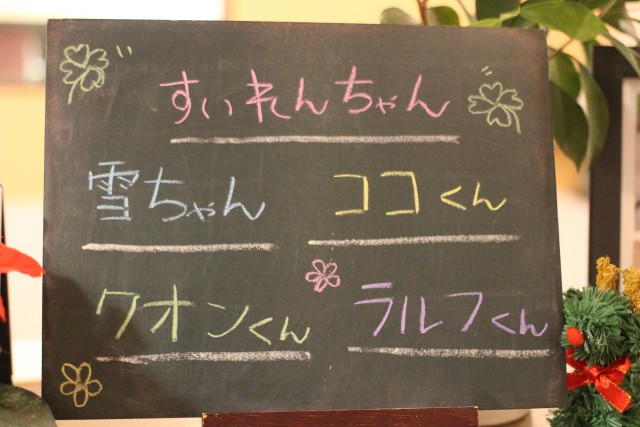 すいれんちゃん
雪ちゃん
ココくん
クオンくん
ラルフくん